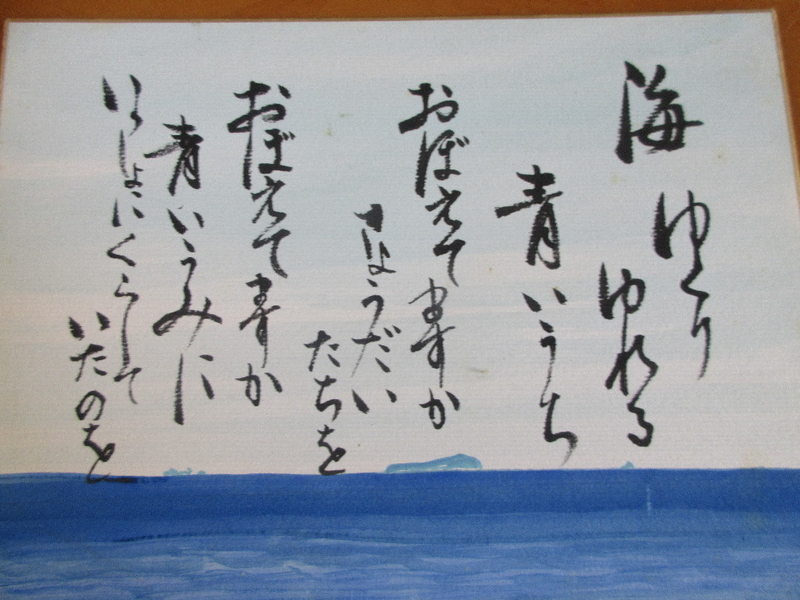 海
ゆくり
ゆれる
青いうち
おぼえてますか
きょうだい
たちを
おぼえてますか
青いうみに
いっしょにくらして
いたのを